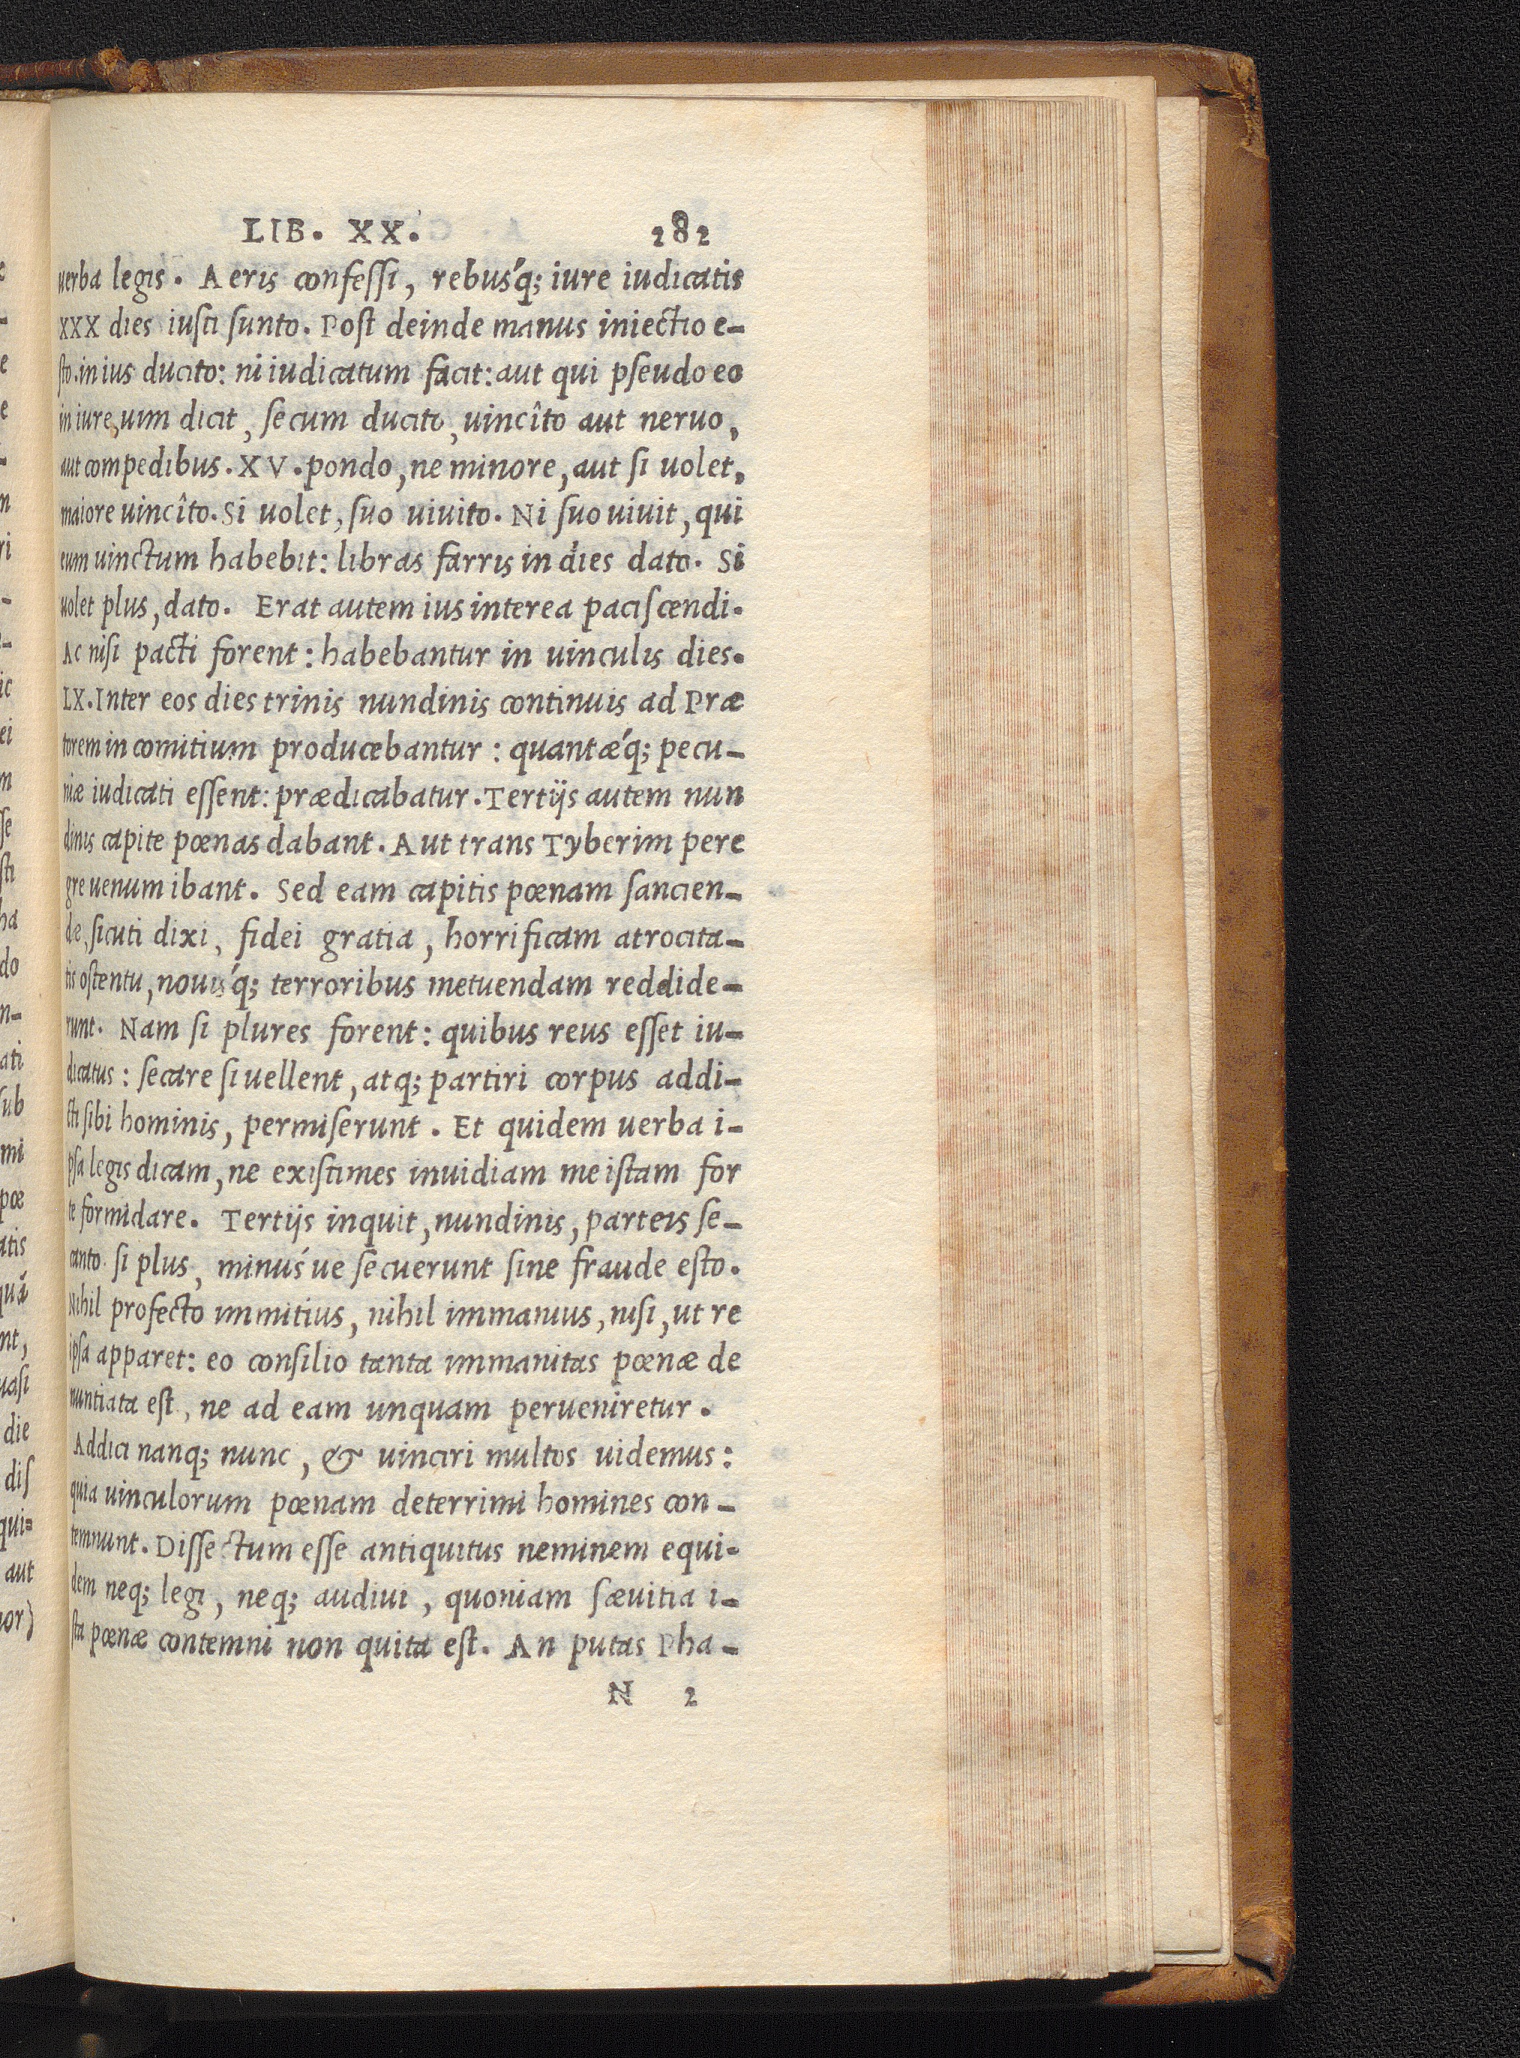 LIB. XX. 282
uerba legis. Aeris confeſſi, rebuśq; iure iudicatis
XXX dies iuſti ſunto. Poſt deinde manus iniectio e-
ſto.in ius ducito: ni iudicatum facit: aut qui pſeudo eo
in iure, uim dicit, ſecum ducito, uincîto aut neruo,
aut compedibus. XV. pondo, ne minore, aut ſi uolet,
maiore uincîto. Si uolet, ſuo uiuito. Ni ſuo uiuit, qui
eum uinctum habebit: libras farris in dies dato. Si
uolet plus, dato. Erat autem ius interea paciſcendi.
Ac niſi pacti forent: habebantur in uinculis dies.
LX. Inter eos dies trinis nundinis continuis ad Præ
torem in comitium producebantur: quantǽq; pecu-
niæ iudicati eſſent: prædicabatur. Tertijs autem nun
dinis capite pœnas dabant. Aut trans Tyberim pere
gre uenum ibant. Sed eam capitis pœnam ſancien-
dæ, ſicuti dixi, fidei gratia, horrificam atrocita-
tis oſtentu, nouiśq; terroribus metuendam reddide-
runt. Nam ſi plures forent: quibus reus eſſet iu-
dicatus: ſecare ſi uellent, atq; partiri corpus addi-
cti ſibi hominis, permiſerunt. Et quidem uerba i-
pſa legis dicam, ne exiſtimes inuidiam me iſtam for
te formidare. Tertijs inquit, nundinis, parteis ſe-
canto ſi plus, minuś ue ſecuerunt ſine fraude eſto.
Nihil profecto immitius, nihil immanius, niſi, ut re
ipſa apparet: eo conſilio tanta immanitas pœnæ de
nuntiata eſt, ne ad eam unquam perueniretur.
Addici nanq; nunc, & uinciri multos uidemus:
quia uinculorum pœnam deterrimi homines con-
temnunt. Diſſectum eſſe antiquitus neminem equi-
dem neq; legi, neq; audiui, quoniam ſæuitia i-
ſta pœnæ contemni non quita eſt. An putas Pha-
N 2